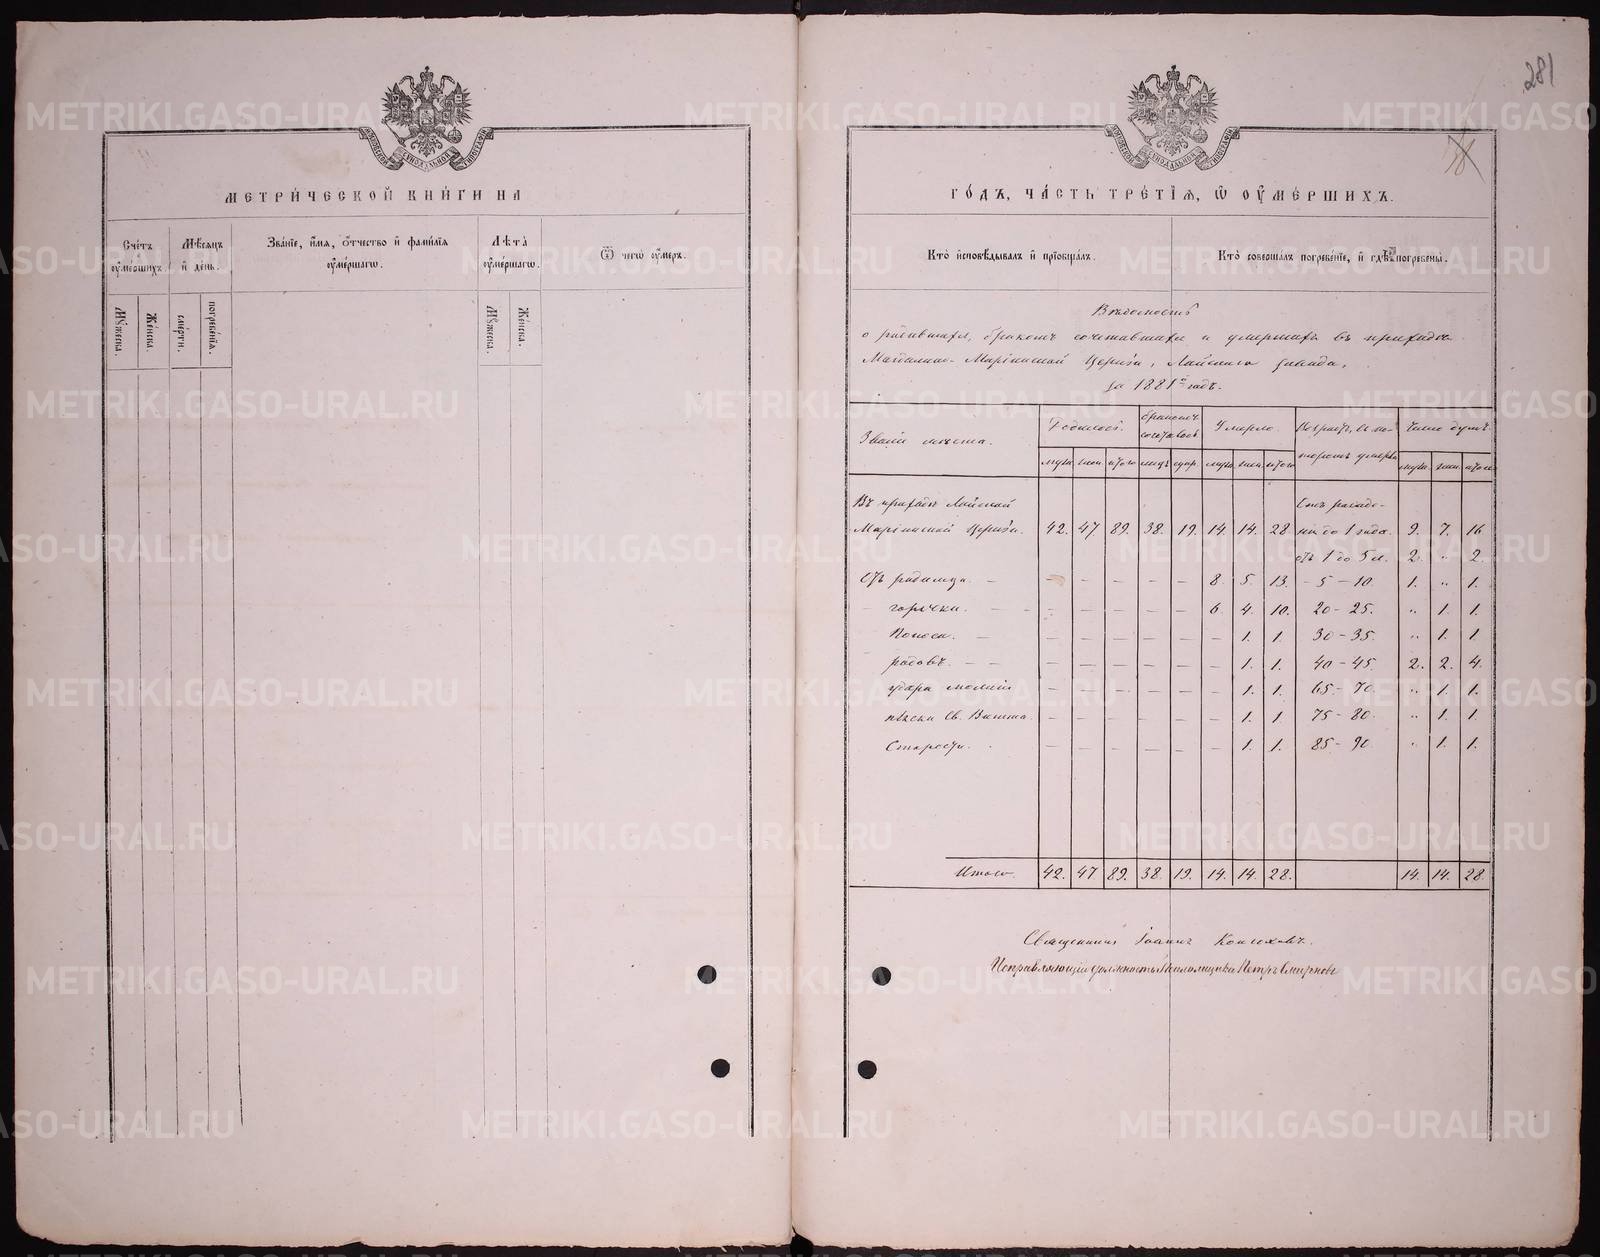 МЕТРИ́ЧЕСКОЙ КНИ́ГИ НА
Сче́тъ ᲂу҆ме́ршихъ.
Мѣ́сяцъ и҆ де́нь.
Зва́нїе, и҆́мя, ѻ҆́тчество и҆ фами́лїя ᲂу҆ме́ршагѡ.
Лѣ́та ᲂу҆ме́ршагѡ.
Ѿ чегѡ̀ ᲂу҆́меръ.
Мꙋ́жеска.
Же́нска.
сме́рти.
погребе́нїя.
Мꙋ́жеска.
Же́нска.
281
ГО́ДЪ, ЧА́СТЬ ТРЕ́ТЇЯ, Ѡ҆ ОУ҆МЕ́РШИХЪ.
Кто̀ и҆сповѣ́дывалъ и҆ прїобща́лъ.
Кто̀ соверша́лъ погребе́нїе, и҆ гдѣ̀ погребены̀.
Вѣдомость
о родившихся, бракомъ сочетавшихся и умершихъ въ приходѣ
Маріинской Церкви, Лайскаго завода,
за 1881й годъ.
Званіе мѣста.
Родилось.
бракомъ сочеталось
Умерло.
Возрастъ, въ которомъ умерли
Число душъ.
муж. жен. итого лицъ супр. муж. жен. итого муж. жен. итого
Въ приходѣ Лайской Отъ рожде-
Маріинской Церкви. 42. 47. 89. 38. 19. 14. 14. 28 нія до 1 года. 9. 7. 16
отъ 1 до 5 л. 2. " 2.
Отъ родимца. — — — — — — 8. 5. 13. — 5 — 10. 1. " 1.
— горячки. — — — — — — 6. 4. 10. 20 — 25. " 1. 1.
Поноса. — — — — — — — 1. 1. 30 — 35. " 1. 1.
родовъ. — — — — — — — — 1. 1. 40 — 45. 2. 2. 4.
удара молніи — — — — — — 1. 1. 65 — 70. " 1. 1.
пляски Св. Витта. — — — — — — 1. 1 75 — 80. " 1. 1.
Старости. — — — — — — 1. 1. 85 — 90 " 1. 1.
Итого. 42. 47 89. 38. 19. 14. 14. 28. 14. 14. 28
Священникъ Іоаннъ
Исправляющій должность Псаломщика Петръ Смирновъ